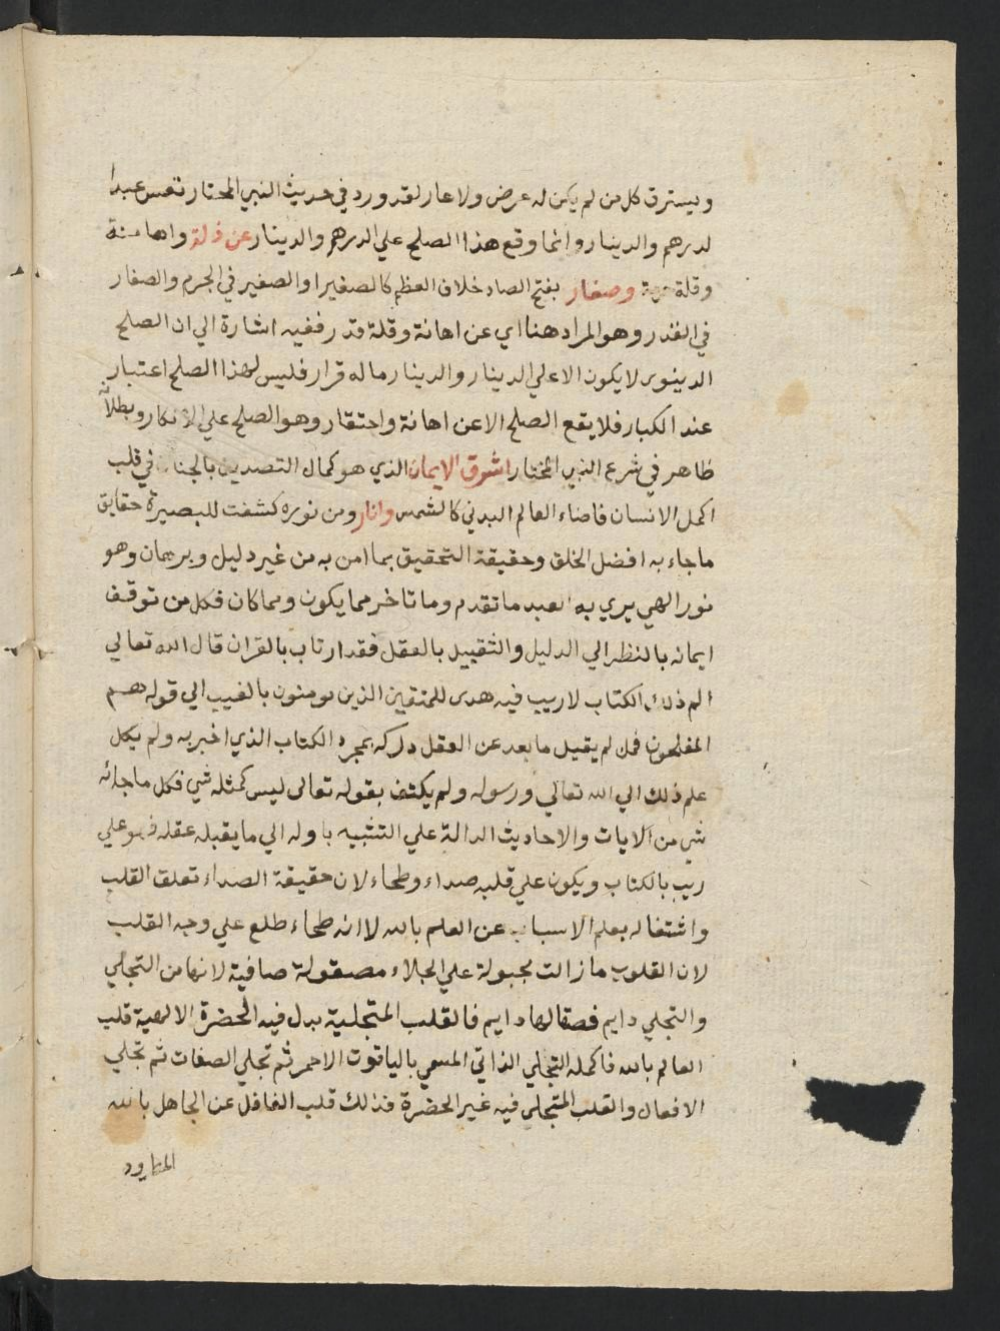 ويسترق كل من لم يكن له عرض ولا عار لقد ورد في حديث النبي المختار تعس عبدا
لدرهم والدينار وانما وقع هذا الصلح علي الدرهم والدينار عن ذلة واهانة
وقلة وصغار بفتح الصاد خلاف العظم كالصغير او الصغير في الجرم والصغار
في القدر وهو المراد هنا اي عن اهانة وقلة قدر ففيه اشارة الي ان الصلح
الدينوي لا يكون الا علي الدينار والدينار ماله قرار فليس لهذا الصلح اعتبار
عند الكبار فلا يقع الصلح الا عن اهانة واحتقار وهو الصلح علي الانكار وبطلانه
ظاهر في شرع النبي المختار اشرق الايمان الذي هو كمال التصديق بالجنان في قلب
اكمل الانسان فاضاء العالم البدني كالشمس وانار ومن نوره كشفت للبصيرة حقايق
ماجاء به افضل الخلق وحقيقة التحقيق بما امن به من غير دليل وبرهان وهو
نور الهي يري به العبد ما تقدم وما تاخر مما يكون ومما كان فكل من توقف
ايمانه بالنظر الي الدليل والتقييد بالعقل فقد ارتاب بالقران قال الله تعالي
الم ذلك الكتاب لا ريب فيه هدى للمتقين الذين يومنون بالغيب الي قوله هم
المفلحون فمن لم يقبل ما بعد عن العقل دركه بمجرد الكتاب الذي اخبر به ولم يكل
علم ذلك الي الله تعالي ورسوله ولم يكتف بقوله تعالى ليس كمثله شي فكل ما جائه
شي من الايات والاحاديث الدالة علي التشبيه باوله الي ما يقبله عقله فهو علي
ريب بالكتاب ويكون علي قلبه صداء وطخاء لان حقيقة الصداء تعلق القلب
واشتغاله بعلم الاسباب عن العلم بالله لا انه طخاء طلع علي وجه القلب
لان القلوب ما زالت مجبولة علي الجلاء مصقولة صافية لانها من التجلي
والتجلي دايم فصقالها دايم فالقلب المتجلية بدل فيه الحضرة الالهية قلب
العالم بالله فاكمله التجلي الذاتي المسمي بالياقوت الاحمر ثم تجلي الصفات ثم تجلي
الافعال والقلب المتجلي فيه غير الحضرة فذلك قلب الغافل عن الجاهل بالله
المطرود